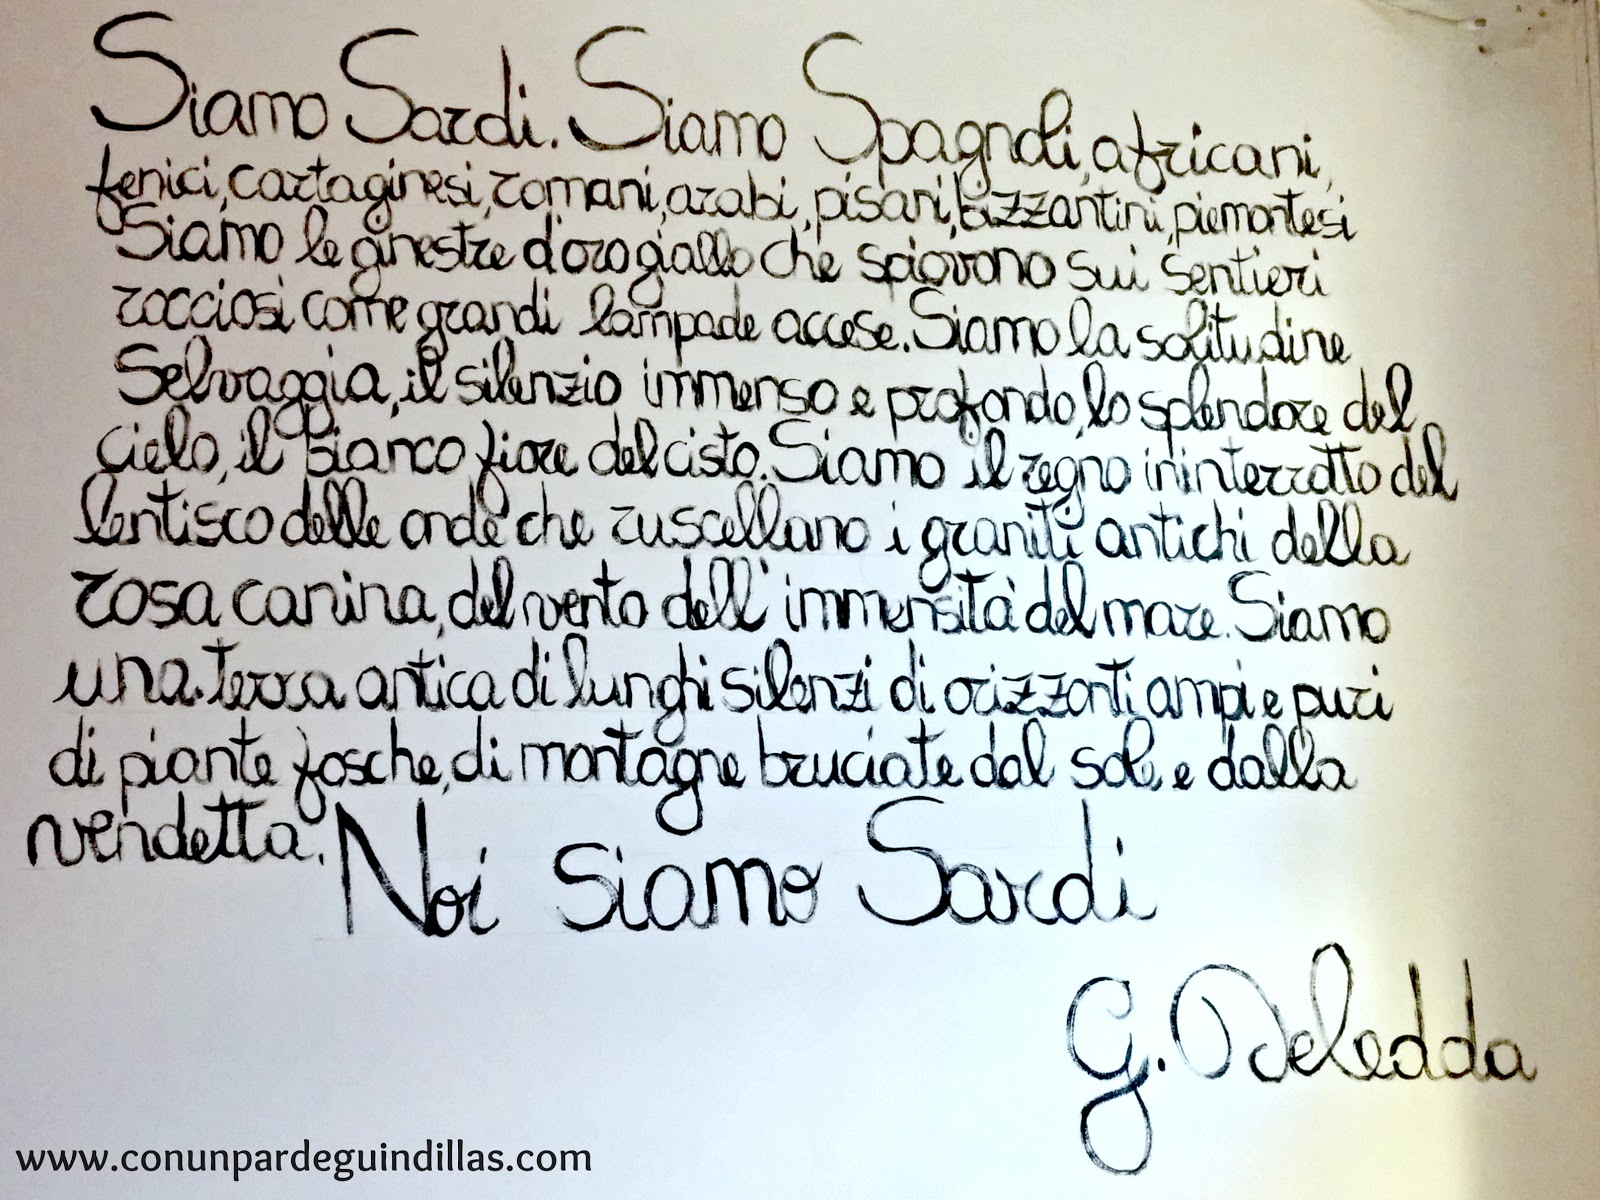 Siamo Sardi. Siamo Spagnoli, africani,
fenici, cartaginesi, romani, arabi, pisani, bizzantini, piemontesi
Siamo le ginestre d'oro giallo che spiovono sui sentieri
rocciosi come grandi lampade accese. Siamo la solitudine
Selvaggia, il silenzio immenso e profondo, lo splendore del
cielo, il bianco fiore del cisto. Siamo il regno ininterrotto del
lentisco delle onde che ruscellano i graniti antichi della
rosa canina, del vento dell'immensità del mare. Siamo
una terra antica di lunghi silenzi di orizzonti ampi e puri
di piante fosche, di montagne bruciate dal sole e dalla
vendetta. Noi siamo Sardi
G. Deledda
www.conunpardeguindillas.com